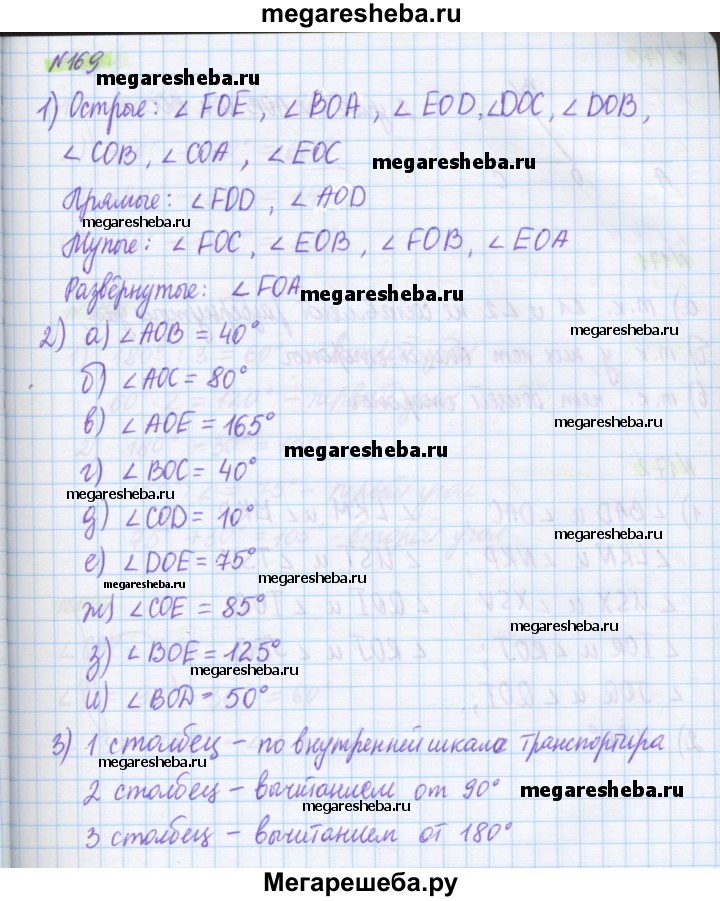 megaresheba.ru
№169
megaresheba.ru
1) Острые: ∠FOE, ∠BOA, ∠EOD, ∠DOC, ∠DOB,
∠COB, ∠COA, ∠EOC
megaresheba.ru
Прямые: ∠FOD, ∠AOD
megaresheba.ru
Тупые: ∠FOC, ∠EOB, ∠FOB, ∠EOA
Развёрнутые: ∠FOA
megaresheba.ru
2) а) ∠AOB = 40°
megaresheba.ru
б) ∠AOC = 80°
в) ∠AOE = 165°
megaresheba.ru
megaresheba.ru
г) ∠BOC = 40°
megaresheba.ru
д) ∠COD = 10°
megaresheba.ru
е) ∠DOE = 75°
megaresheba.ru
megaresheba.ru
ж) ∠COE = 85°
megaresheba.ru
з) ∠BOE = 125°
megaresheba.ru
и) ∠BOD = 50°
3) 1 столбец – по внутренней шкале транспортира
megaresheba.ru
2 столбец – вычитанием от 90°
megaresheba.ru
megaresheba.ru
3 столбец – вычитанием от 180°
megaresheba.ru
Мегарешеба.ру